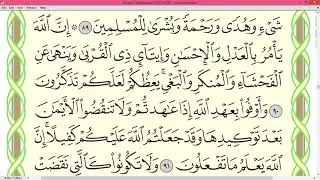 شَىْءٍ وَهُدًى وَرَحْمَةً وَبُشْرَىٰ لِلْمُسْلِمِينَ ٨٩ ۞ إِنَّ ٱللَّهَ
يَأْمُرُ بِٱلْعَدْلِ وَٱلْإِحْسَٰنِ وَإِيتَآئِ ذِى ٱلْقُرْبَىٰ وَيَنْهَىٰ عَنِ
ٱلْفَحْشَآءِ وَٱلْمُنكَرِ وَٱلْبَغْىِ ۚ يَعِظُكُمْ لَعَلَّكُمْ تَذَكَّرُونَ
٩٠ وَأَوْفُوا۟ بِعَهْدِ ٱللَّهِ إِذَا عَٰهَدتُّمْ وَلَا تَنقُضُوا۟ ٱلْأَيْمَٰنَ
بَعْدَ تَوْكِيدِهَا وَقَدْ جَعَلْتُمُ ٱللَّهَ عَلَيْكُمْ كَفِيلًا ۚ إِنَّ
ٱللَّهَ يَعْلَمُ مَا تَفْعَلُونَ ٩١ وَلَا تَكُونُوا۟ كَٱلَّتِى نَقَضَتْ